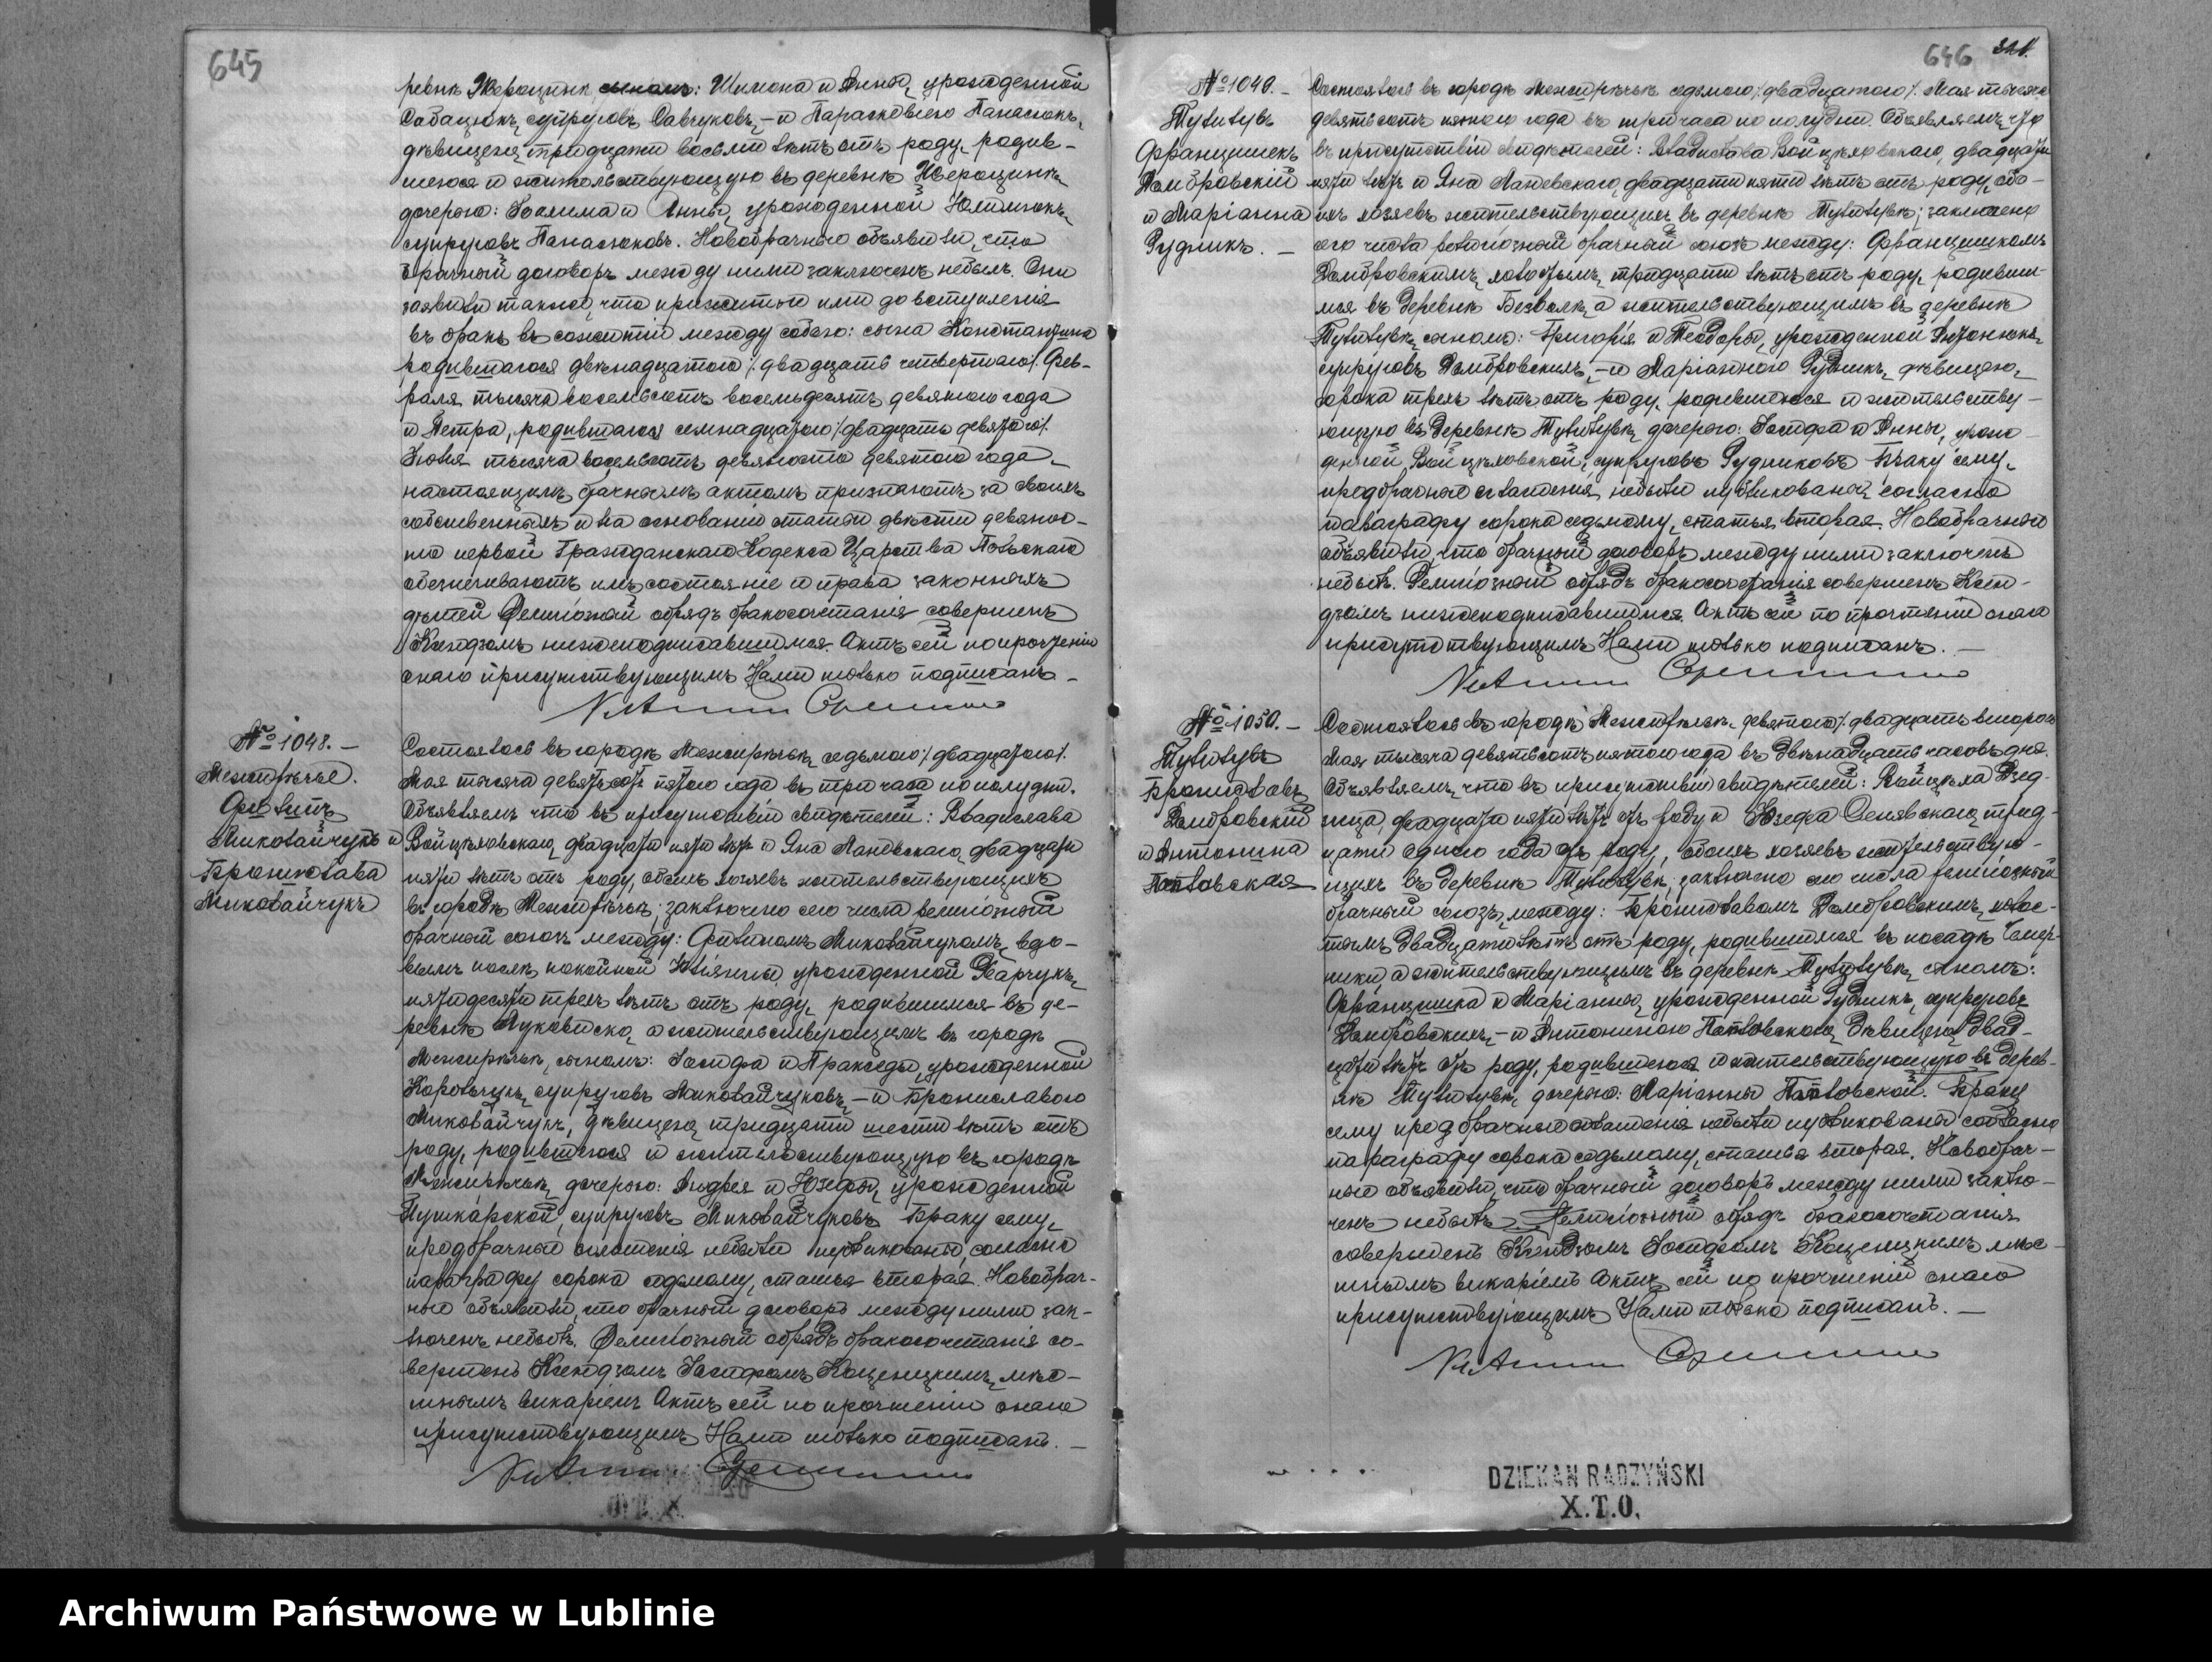 645
ревнѣ Жерощинк сыномъ: Шимона и Анны, урожденной
Сабацюкъ, супруговъ Савчуковъ, – и Парасковiею Панасюкъ,
дѣвицею, тридцати восьми лѣтъ отъ роду, родив-
шеюся и жительствующую въ деревнѣ
дочерью: Іоакима и Анны, урожденной
супруговъ Панасюковъ. Новобрачные объявили, что
брачный договоръ между ними заключенъ небылъ. Они
заявили также, что прижитые ими до вступленія
въ бракъ въ сожитіи между собою: сына Константина
родившагося двѣнадцатаго /двадцать четвертаго/ Фев-
раля тысяча восемьсотъ восемьдесятъ девятаго года
и Петра, родившагося семнадцатаго /двадцать девятаго/
Іюня тысяча восемьсотъ девяносто девятаго года
настоящимъ брачнымъ актомъ признаютъ за своихъ
собственныхъ и на основаніи статьи двѣсти девянос-
то первой Гражданскаго Кодекса Царства Польскаго
обезпечиваютъ имъ состояніе и права законныхъ
дѣтей Религіозный обрядъ бракосочетанія совершенъ
Ксендзомъ нижеподписавшимся. Актъ сей по прочтеніи
онаго присутствующимъ Нами только подписанъ –
№ 1048. –
Межирѣчье.
Филипъ
Миколайчукъ и
Бронислава
Миколайчукъ
Состоялось въ городѣ Межирѣчьѣ, седьмого /двадцатого/
Мая тысяча девятьсотъ пятого года въ три часа пополудни.
Объявляемъ что въ присутствіи свидѣтелей: Владислава
Войцѣховскаго, двадцати пяти лѣтъ и Яна Лановскаго, двадцати
пяти лѣтъ отъ роду, обоихъ хозяевъ жительствующихъ
въ городѣ Межирѣчьѣ; заключено сего числа религіозный
брачный союзъ между: Филипомъ Миколайчукомъ, вдо-
вымъ послѣ покойной Юліянны урожденной Харчукъ,
пятидесяти трехъ лѣтъ отъ роду, родившимся въ де-
ревнѣ Луковиско, а жительствующимъ въ городѣ
Межирѣчьѣ, сыномъ: Іосифа и Праксед��, урожденной
Корольчукъ, супруговъ Миколайчуковъ, – и Брониславою
Миколайчукъ, дѣвицею, тридцати шести лѣтъ отъ
роду, родившеюся и жительствующую въ городѣ
Межирѣчьѣ, дочерью: Андрея и Юзефы, урожденной
Пушкарской, супруговъ Миколайчуковъ Браку сему,
предбрачныя оглашенія небыли публикованы, согласно
параграфу сорока седьмому, статья вторая. Новобрач-
ные объявили, что брачный договоръ между ними зак-
люченъ небылъ. Религіозный обрядъ бракосочетанія со-
вершенъ Ксендзомъ Іосифомъ Коценцкимъ, мѣс-
тнымъ викаріемъ Актъ сей по прочтеніи онаго
присутствующимъ Нами только подписанъ. –
646
№ 1049. –
Тулиловъ
Францишекъ
Домбровскій
и Маріанна
Рудникъ. –
Состоялось въ городѣ Межирѣчьѣ седьмого /двадцатого/ Мая тысяча
девятьсотъ пятого года въ три часа по полудни. Объявляемъ, что
въ присутствіи свидѣтелей: Владислава Войцѣховскаго, двадцати
пяти лѣтъ и Яна Лановскаго, двадцати пяти лѣтъ отъ роду, обо-
ихъ хозяевъ жительствующихъ въ деревнѣ Тулиловѣ; заключено
сего числа религіозный брачный союзъ между: Францишкомъ
Домбровскимъ, холостымъ, тридцати лѣтъ отъ роду, родивши-
мся въ деревнѣ Безволя, а жительствующимъ въ деревнѣ
Тулиловѣ, сыномъ: Григорія и Теодоры, урожденной Антонюкъ,
супруговъ Домбровскихъ, – и Маріанною Рудникъ, дѣвицею,
сорока трехъ лѣтъ отъ роду, родившеюся и жительству-
ющую въ деревнѣ Тулиловѣ, дочерью: Іосифа и Анны, урож-
денной Войцѣховской, супруговъ Рудниковъ Браку сему,
предбрачныя оглашенія небыли публикованы, согласно
параграфу сорока седьмому, статья вторая. Новобрачные
объявили, что брачный договоръ между ними заключенъ
небылъ. Религіозный обрядъ бракосочетанія совершенъ Ксен-
дзомъ нижеподписавшимся. Актъ сей по прочтеніи онаго
присутствующимъ Нами только подписанъ. –
№ 1050. –
Тулиловъ
Брониславъ
Домбровскій
и Антонина
Состоялось въ городѣ Межирѣчьѣ, девятого /двадцать второго/
Мая тысяча девятьсотъ пятого года въ двѣнадцать часовъ дня.
Объявляемъ, что въ присутствіи свидѣтелей: Войцѣха
двадцати пяти лѣтъ отъ роду и Юзефа трид-
цати одного года отъ роду, обоихъ хозяевъ жительствую-
щихъ въ деревнѣ Тулиловѣ; заключено сего числа религіозный
брачный союзъ, между: Брониславомъ Домбровскимъ, холос-
тымъ двадцати лѣтъ отъ роду, родившимся въ посадѣ Чемер-
ники, а жительствующимъ въ деревнѣ Тулиловѣ, сыномъ:
Францишка и Маріанны, урожденной Рудникъ, супруговъ
Домбровскихъ, – и Антониною дѣвицею, двад-
цати лѣтъ отъ роду, родившеюся и жительствующую въ дерев-
нѣ Тулиловѣ, дочерью: Маріанны Браку
сему предбрачныя оглашенія небыли публикованы согласно
параграфу сорока седьмому, статья вторая. Новобрач-
ные объявили, что брачный договоръ между ними заклю-
ченъ небылъ. Религіозный обрядъ бракосочетанія
совершенъ Ксендзомъ Іосифомъ Коценцкимъ мѣс-
тнымъ викаріемъ Актъ сей по прочтеніи онаго
присутствующимъ Нами только подписанъ. –
DZIEKAN RADZYŃSKI
X.T.O.
Archiwum Państwowe w Lublinie